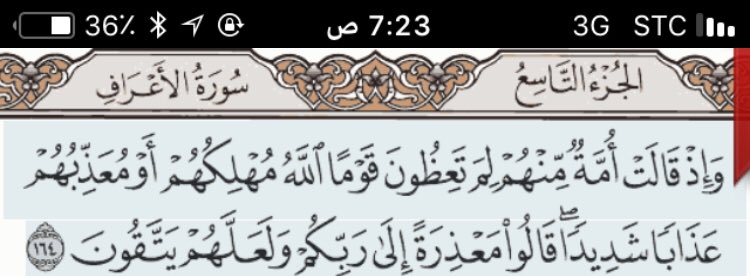 36٪ 7:23 ص 3G STC
الجُزْءُ التَّاسِعُ سُورَةُ الأَعْرَافِ
وَإِذْ قَالَتْ أُمَّةٌ مِّنْهُمْ لِمَ تَعِظُونَ قَوْمًا ٱللَّهُ مُهْلِكُهُمْ أَوْ مُعَذِّبُهُمْ
عَذَابًا شَدِيدًاۖ قَالُوا۟ مَعْذِرَةً إِلَىٰ رَبِّكُمْ وَلَعَلَّهُمْ يَتَّقُونَ ١٦٤